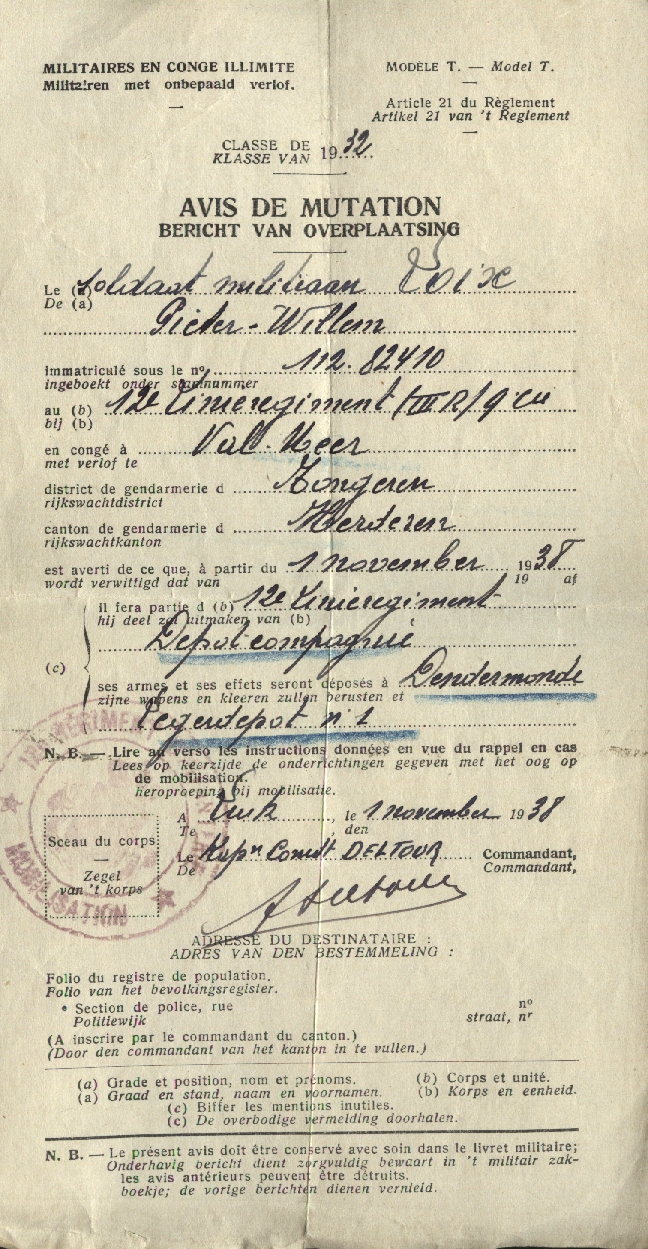 MILITAIRES EN CONGE ILLIMITE
Militairen met onbepaald verlof.
MODÈLE T. — Model T.
Article 21 du Règlement
Artikel 21 van 't Reglement
CLASSE DE
KLASSE VAN 1932
AVIS DE MUTATION
BERICHT VAN OVERPLAATSING
Le (a) Soldaat militiaan Voix
De (a)
Pieter-Willem
immatriculé sous le nº 112.82410
ingeboekt onder stamnummer
au (b) 12e Linieregiment /III R/9 Cu
bij (b)
en congé à Val-Meer
met verlof te
district de gendarmerie d Tongeren
rijkswachtdistrict
canton de gendarmerie d Herderen
rijkswachtkanton
est averti de ce que, à partir du 1 november 1938
wordt verwittigd dat van 19 af
(c)
il fera partie d (b) 12e Linieregiment
hij deel zal uitmaken van (b)
Depot compagnie
ses armes et ses effets seront déposés à Dendermonde
zijne wapens en kleeren zullen berusten et
Legerdepot nº 1
N. B. — Lire au verso les instructions données en vue du rappel en cas
Lees op keerzijde de onderrichtingen gegeven met het oog op
de mobilisation.
heroproeping bij mobilisatie.
A Luik, le 1 november 1938
Te , den
Le Kapn Comdt DELTOUR Commandant,
De Commandant,
Sceau du corps
—
Zegel
van 't korps
MOBILISATION
ADRESSE DU DESTINATAIRE :
ADRES VAN DEN BESTEMMELING :
Folio du registre de population.
Folio van het bevolkingsregister.
* Section de police, rue nº
Politiewijk straat, nr
(A inscrire par le commandant du canton.)
(Door den commandant van het kanton in te vullen.)
(a) Grade et position, nom et prénoms. (b) Corps et unité.
(a) Graad en stand, naam en voornamen. (b) Korps en eenheid.
(c) Biffer les mentions inutiles.
(c) De overbodige vermelding doorhalen.
N. B. — Le présent avis doit être conservé avec soin dans le livret militaire;
Onderhavig bericht dient zorgvuldig bewaart in 't militair zak-
les avis antérieurs peuvent être détruits.
boekje; de vorige berichten dienen vernield.